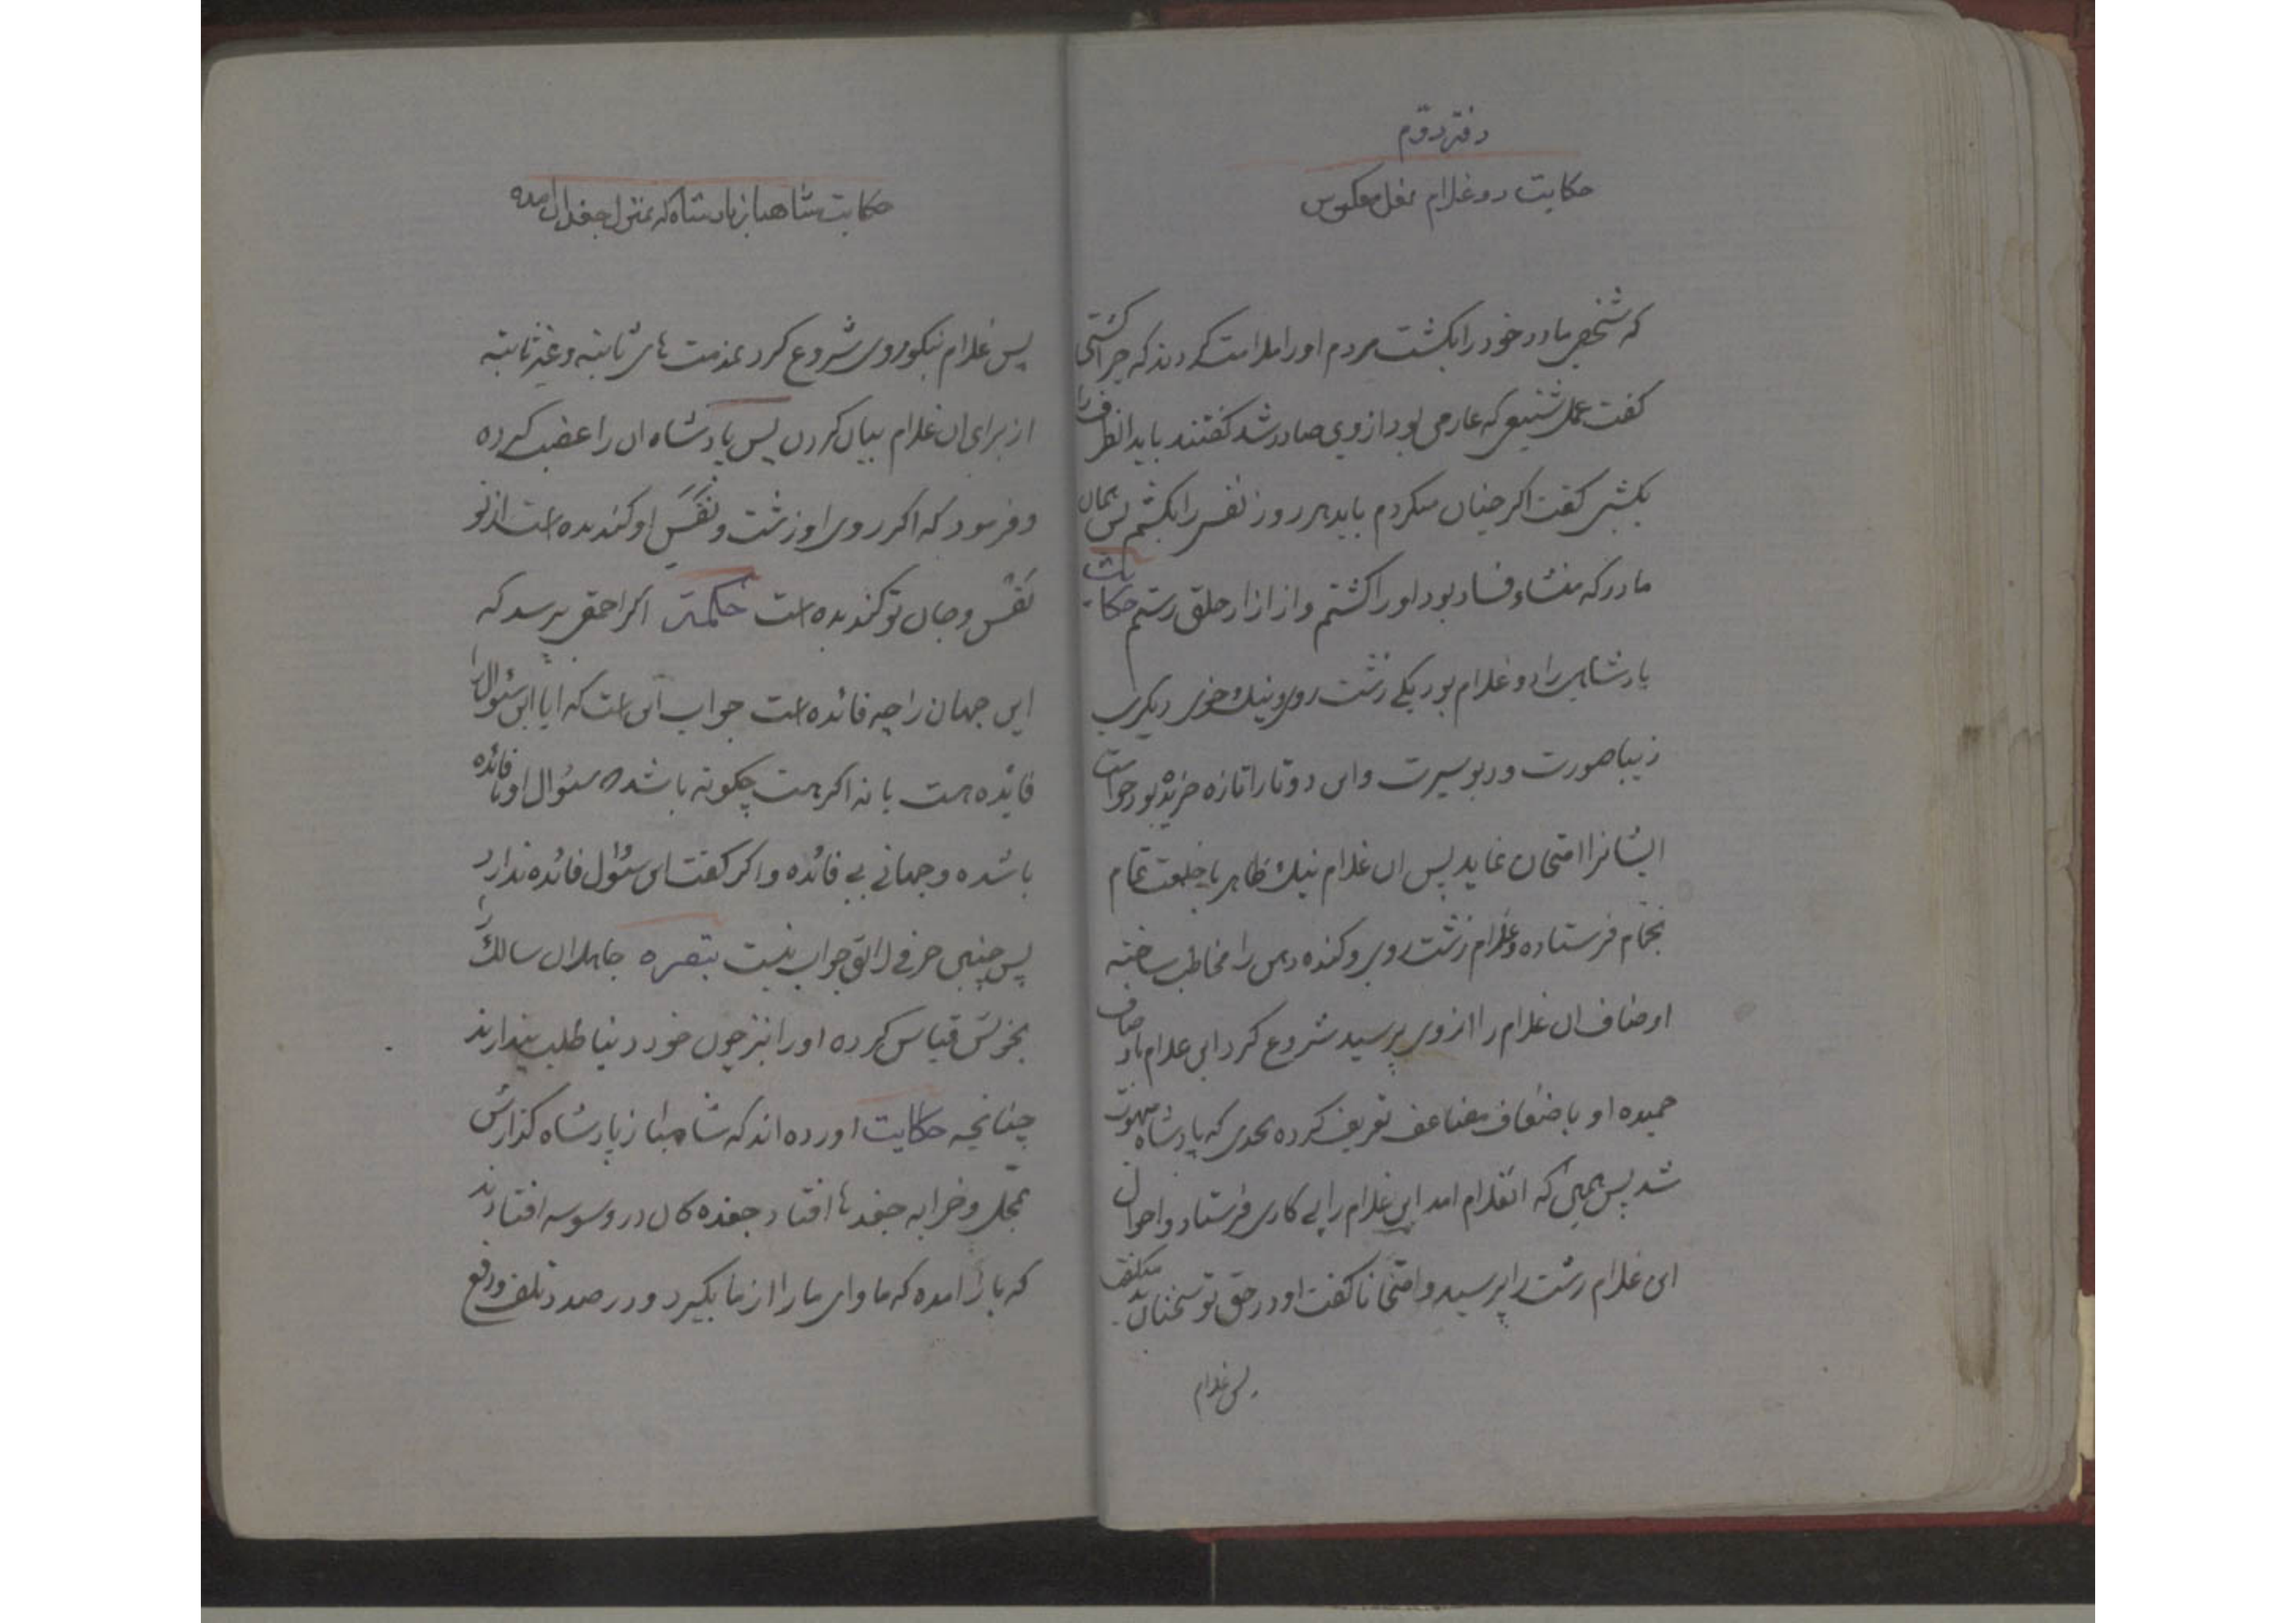 دفتر دوم
حکایت دو غلام نعل معکوس
که شخصی مادر خود را بکشت مردم او را ملامت کردند که چرا کشتی
گفت عمل شنیعی که عار می بود از وی صادر شد گفتند باید انطرف را
بکشی گفت اگر چنان میکردم باید هر روز نفسی را بکشم پس همان
مادر که منشاء فساد بود او را کشتم و از ازار خلق رستم حکایت
پادشاهی را دو غلام بود یکی زشت روی و نیک خوی دیگری
زیبا صورت و دیو سیرت و این دو تا را تازه خریده بود خواست
ایشانرا امتحان نماید پس ان غلام نیک ظاهر با خلعت تمام
بحمام فرستاده و غلام زشت روی و کنده دهن را مخاطب ساخته
اوصاف ان غلام را از وی پرسید شروع کرد این غلام باوصاف
حمیده او باضعاف مضاعف تعریف کرده بحدی که پادشاه مبهوت
شد پس همین که انغلام امد این غلام را پی کاری فرستاد و احوال
این غلام زشت را پرسید و امتحانا گفت او در حق تو سخنان بد میگفت
پس غلام
حکایت شاهباز پادشاه که بمنزل جغدان امده
پس غلام نیکوروی شروع کرد بمذمت های ثابته و غیر ثابته
از برای ان غلام بیان کردن پس پادشاه ان را غضب کرده
و فرمود که اگر روی او زشت و نَفَسَ او کندیده است از تو
نَفْس و جان تو کندیده است حکمة اگر احمقی پرسد که
این جهان را چه فائده است جواب این است که ایا این سئوال را
فائده هست یا نه اگر هست چگونه باشد سئوال او با فائده
باشده و جهانی بی فائده و اگر گفت این سئوال فائده ندارد
پس چنین حرفی لایق جواب نیست تبصره جاهلان سالک را
بخویش قیاس کرده او را نیز چون خود دنیا طلب پندارند
چنانچه حکایت اورده اند که شاهباز پادشاه گذارش
بمحل و خرابه جغدها افتاد جغده کان در وسوسه افتادند
که باز امده که ماوای ما را از ما بگیرد و در صدد تلف و دفع